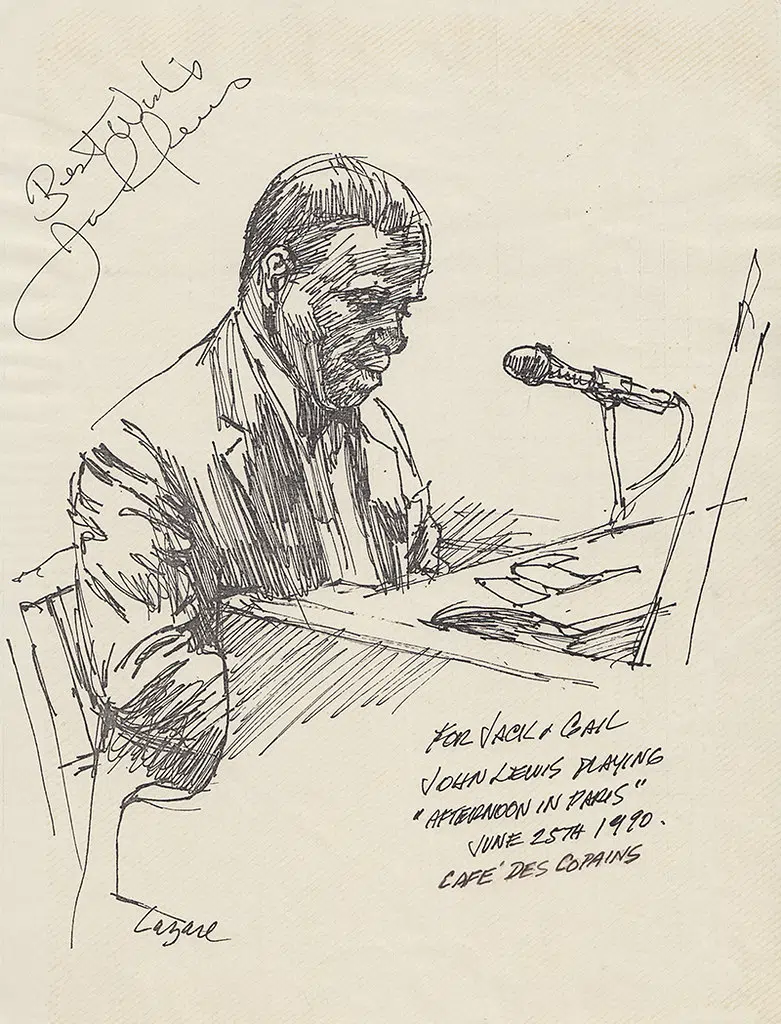 Best Wishes
John Lewis
FOR JACK & GAIL
JOHN LEWIS PLAYING
"AFTERNOON IN PARIS"
JUNE 25TH 1990.
CAFÉ DES COPAINS
Lazare